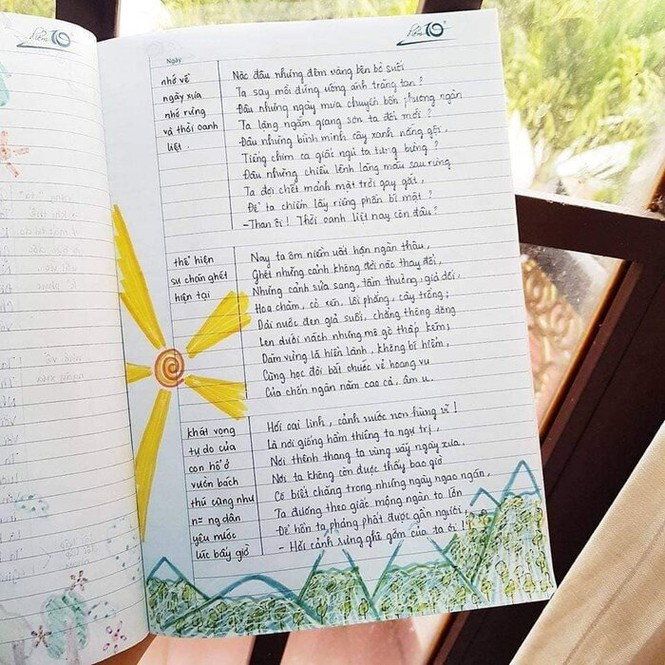 Ngày
nhớ về
ngày xưa
nhớ rừng
và thời oanh
liệt.
Nào đâu những đêm vàng bên bờ suối
Ta say mồi đứng uống ánh trăng tan?
Đâu những ngày mưa chuyển bốn phương ngàn
Ta lặng ngắm giang sơn ta đổi mới?
Đâu những bình minh cây xanh nắng gội,
Tiếng chim ca giấc ngủ ta tưng bừng?
Đâu những chiều lênh láng máu sau rừng
Ta đợi chết mảnh mặt trời gay gắt,
Để ta chiếm lấy riêng phần bí mật?
- Than ôi! Thời oanh liệt nay còn đâu?
thể hiện
sự chán ghét
hiện tại
Nay ta ôm niềm uất hận ngàn thâu,
Ghét những cảnh không đời nào thay đổi,
Những cảnh sửa sang, tầm thường, giả dối,
Hoa chăm, cỏ xén, lối phẳng, cây trồng;
Dải nước đen giả suối, chẳng thông dòng
Len dưới nách những mô gò thấp kém;
Dăm vừng lá hiền lành, không bí hiểm,
Cũng học đòi bắt chước vẻ hoang vu
Của chốn ngàn năm cao cả, âm u.
khát vọng
tự do của
con hổ ở
vườn bách
thú cũng như
n= ng dân
yêu nước
lúc bấy giờ
Hỡi oai linh, cảnh nước non hùng vĩ!
Là nơi giống hầm thiêng ta ngự trị,
Nơi thênh thang ta vùng vẫy ngày xưa,
Nơi ta không còn được thấy bao giờ
Có biết chăng trong những ngày ngao ngán,
Ta đương theo giấc mộng ngàn to lớn
Để hồn ta phảng phất được gần ngươi,
- Hỡi cảnh rừng ghê gớm của ta ơi!